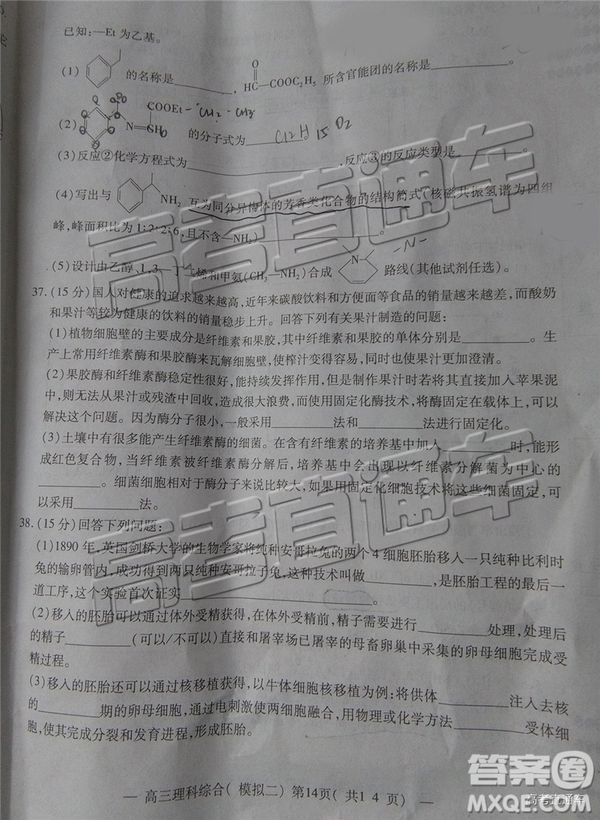 已知:—Et为乙基。
(1) 的名称是________,H COOC₂H₅所含官能团的名称是________。
COOEt -CH₂-CH₃
(2) N=CH 的分子式为 C12H15O2
(3)反应②化学方程式为________,反应③的反应类型是________。
(4)写出与 NH₂ 互为同分异构体的芳香类化合物的结构简式(核磁共振氢谱为四组
峰,峰面积比为1:2:2:6,且不含—NH₂)________
(5)设计由乙醇、1,3—丁二烯和甲氨(CH₃—NH₂)合成 N 路线(其他试剂任选)。
37.(15分)国人对健康的追求越来越高,近年来碳酸饮料和方便面等食品的销量越来越差,而酸奶
和果汁等较为健康的饮料的销量稳步上升。回答下列有关果汁制造的问题:
(1)植物细胞壁的主要成分是纤维素和果胶,其中纤维素和果胶的单体分别是________、________。生
产上常用纤维素酶和果胶酶来瓦解细胞壁,使榨汁变得容易,同时也使果汁更加澄清。
(2)果胶酶和纤维素酶稳定性很好,能持续发挥作用,但是制作果汁时若将其直接加入苹果泥
中,则无法从果汁或残渣中回收,造成很大浪费,而使用固定化酶技术,将酶固定在载体上,可以
解决这个问题。因为酶分子很小,一般采用________法和________法进行固定化。
(3)土壤中有很多能产生纤维素酶的细菌。在含有纤维素的培养基中加入________时,能形
成红色复合物,当纤维素被纤维素酶分解后,培养基中会出现以纤维素分解菌为中心的
________。细菌细胞相对于酶分子来说比较大,如果用固定化技术将这些细菌固定,可
以采用________法。
38.(15分)回答下列问题:
(1)1890年,英国剑桥大学的生物学家将纯种安哥拉兔的两个4细胞胚胎移入一只纯种比利时
兔的输卵管内,成功得到两只纯种安哥拉子兔,这种技术叫做________,是胚胎工程的最后一
道工序,这个实验首次证实________
(2)移入的胚胎可以通过体外受精获得,在体外受精前,精子需要进行________处理,处理后
的精子________(可以/不可以)直接和屠宰场已屠宰的母畜卵巢中采集的卵母细胞完成受
精过程。
(3)移入的胚胎还可以通过核移植获得,以动物体细胞核移植为例:将供体________注入去核
的________期的卵母细胞,通过电刺激使两细胞融合,用物理或化学方法________受体细
胞,使其完成分裂和发育进程,形成胚胎。
— 高三理科综合( 模拟二) 第14页( 共1 4 页) —
高考直通车
高考直通车
答案圈
MXQE.COM
高考直通车